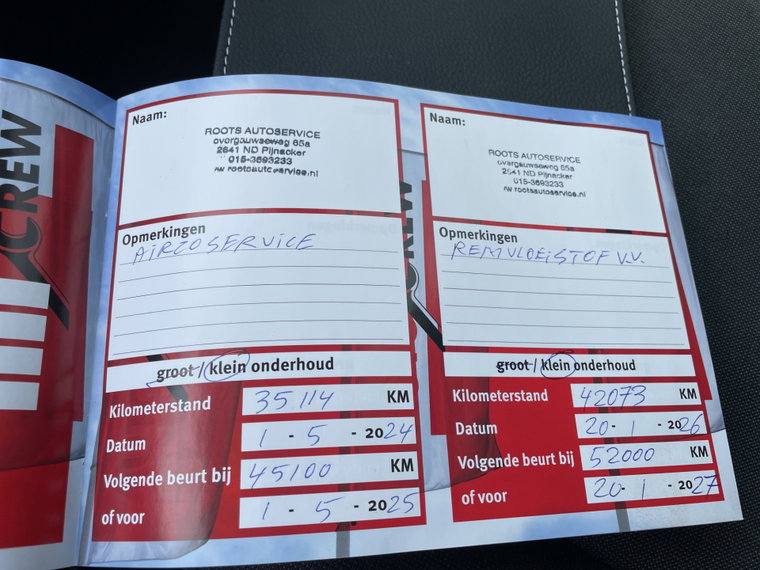 CREW
Naam:
ROOTS AUTOSERVICE
overgauwseweg 65a
2641 ND Pijnacker
015-3693233
rootsautoservice.nl
Opmerkingen
AIRCOSERVICE
groot / klein onderhoud
Kilometerstand 35114 KM
Datum 1 - 5 - 2024
Volgende beurt bij 45100 KM
of voor 1 - 5 - 2025
CREW
Naam:
ROOTS AUTOSERVICE
overgauwseweg 65a
2641 ND Pijnacker
015-3693233
rootsautoservice.nl
Opmerkingen
REMVLOEISTOF V.V.
groot / klein onderhoud
Kilometerstand 42073 KM
Datum 20 - 1 - 2026
Volgende beurt bij 52000 KM
of voor 20 - 1 - 2027